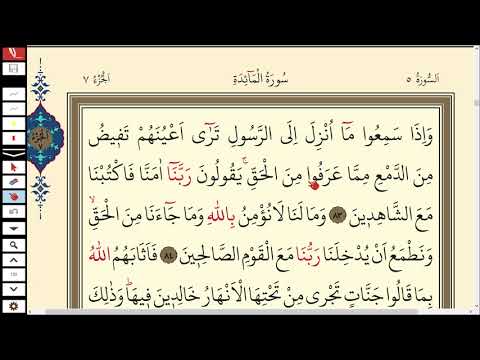 اَلسُّورَةُ ٥ سُورَةُ الْمَآئِدَةِ اَلْجُزْءُ ٧
وَاِذَا سَمِعُوا مَٓا اُنْزِلَ اِلَى الرَّسُولِ تَرٰٓى اَعْيُنَهُمْ تَف۪يضُ
مِنَ الدَّمْعِ مِمَّا عَرَفُوا مِنَ الْحَقِّۚ يَقُولُونَ رَبَّنَٓا اٰمَنَّا فَاكْتُبْنَا
مَعَ الشَّاهِد۪ينَ ٨٣ وَمَا لَنَا لَانُؤْمِنُ بِاللّٰهِ وَمَا جَٓاءَنَا مِنَ الْحَقِّۙ
وَنَطْمَعُ اَنْ يُدْخِلَنَا رَبُّنَا مَعَ الْقَوْمِ الصَّالِح۪ينَ ٨٤ فَاَثَابَهُمُ اللّٰهُ
بِمَا قَالُوا جَنَّاتٍ تَجْر۪ي مِنْ تَحْتِهَا الْاَنْهَارُ خَالِد۪ينَ ف۪يهَاۜ وَذٰلِكَ